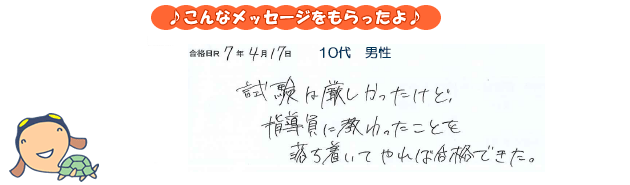 ♪こんなメッセージをもらったよ♪
合格日R 7年 4月17日 10代 男性
試験は厳しかったけど、
指導員に教わったことを
落ち着いてやれば合格できた。